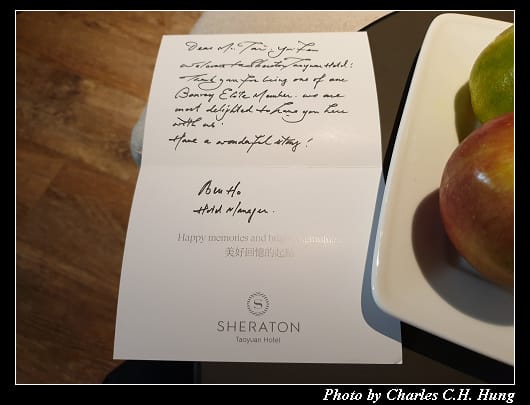 Dear Mr. Tai, Yu Fan
Welcome to Sheraton Taoyuan Hotel!
Thank you for being one of our
Bonvoy Elite Member. we are
most delighted to have you here
with us.
Have a wonderful stay!
Ben Ho
Hotel Manager.
Happy memories and
美好回憶的起點
S
SHERATON
Taoyuan Hotel
Photo by Charles C.H. Hung